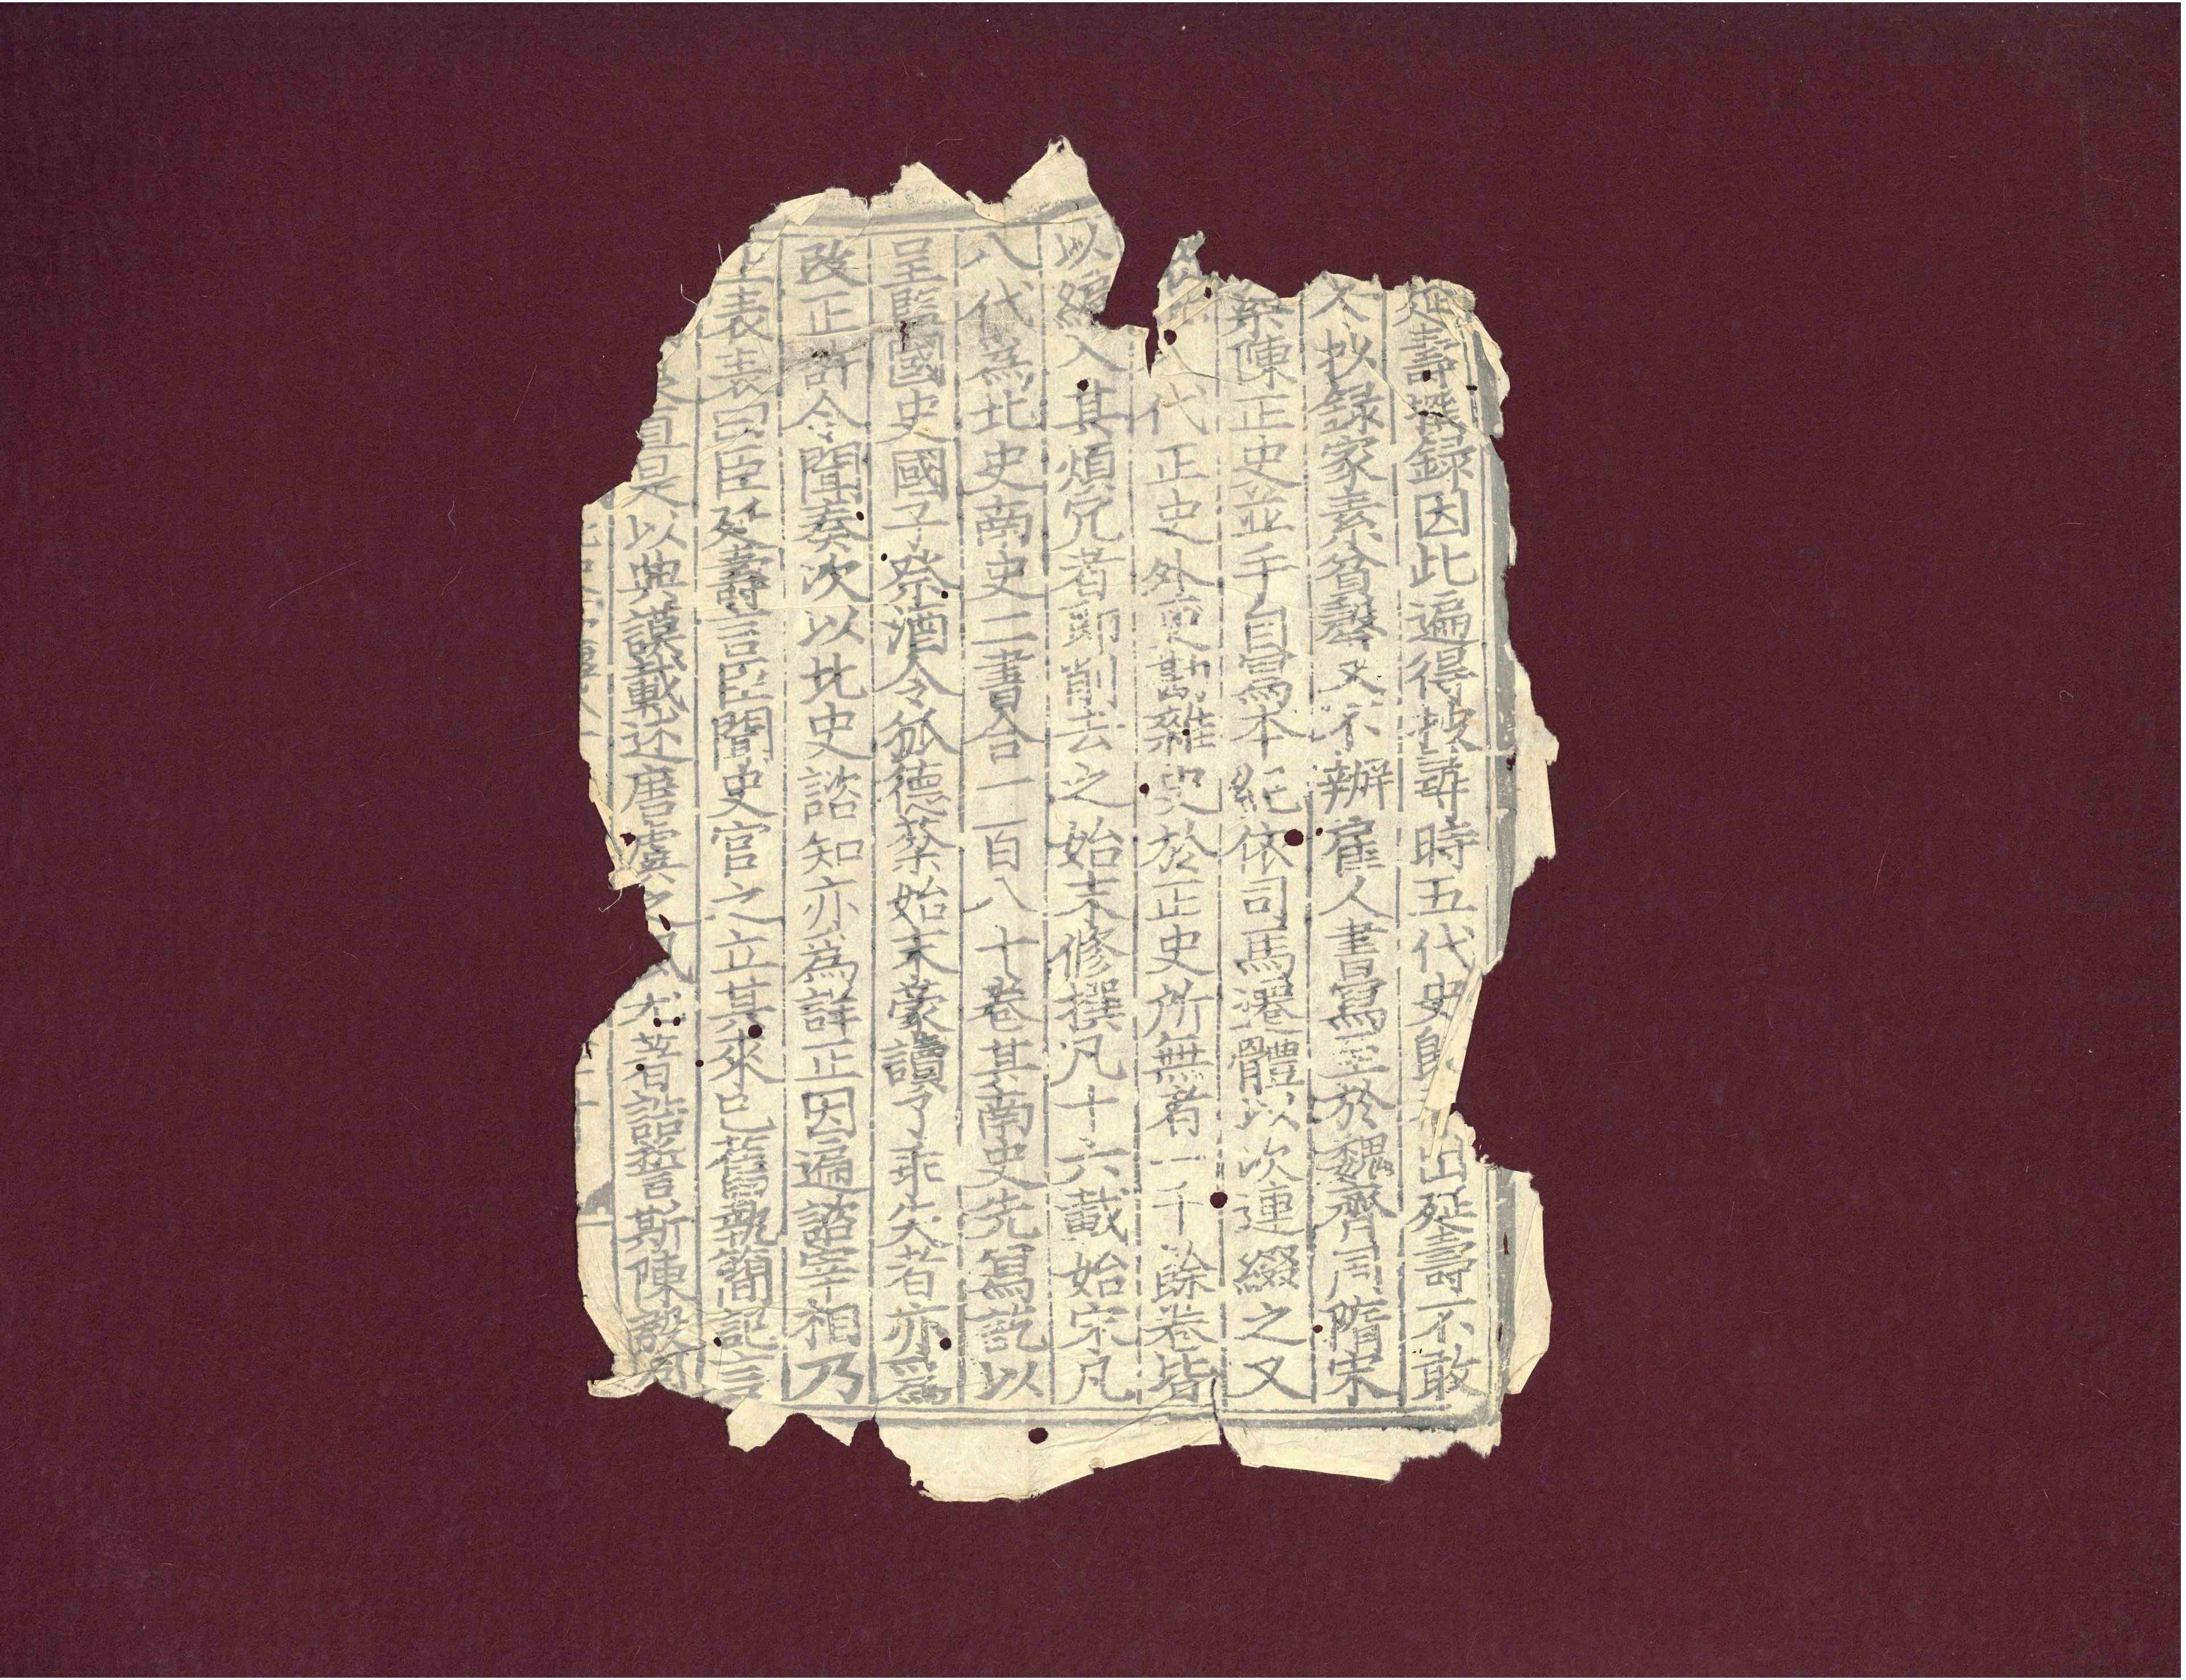 延壽撰録因此遍得披尋時五代史既出延壽不敢
抄録家素貧罄又不辦雇人書寫至於魏齊周隋宋
陳正史並手自寫本紀依司馬遷體以次連綴之又
代正史外更勘雜史於正史所無者一千餘卷皆
以編入其煩冗者即削去之始末修撰凡十六載始宋凡
八代為北史南史二書合一百八十卷其南史先寫訖以
呈監國史國子祭酒令狐德棻始末蒙讀了乖失者亦為
改正許令聞奏次以北史諮知亦為詳正因遍諮宰相乃
上表表曰臣延壽言臣聞史官之立其來已舊執簡記言
直是以典謨載述唐虞之風尤著誥誓斯陳殷周